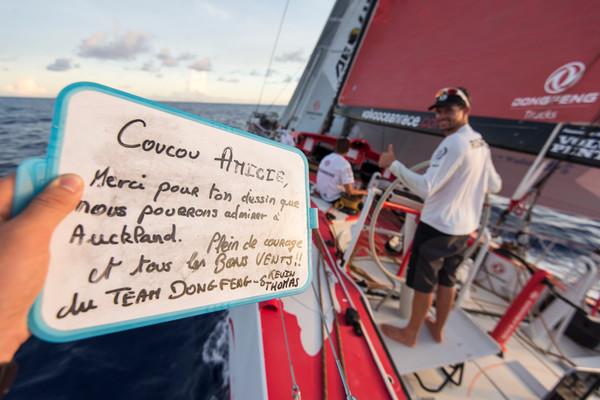 Coucou AMICIE,
Merci pour ton dessin que
nous pourrons admirer à
Auckland. Plein de courage
et tous les BONS VENTS!!
du TEAM DONGFENG - KEVIN
THOMAS
DONGFENG
Trucks
volvooceanrace